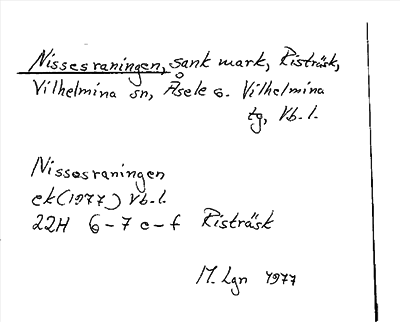 Nissesraningen, sank mark, Risträsk,
Vilhelmina sn, Åsele o. Vilhelmina
tg, Vb. l.
Nissesraningen
ek (1977) Vb. l.
22H 6-7 e-f Risträsk
M. Lgn 1977